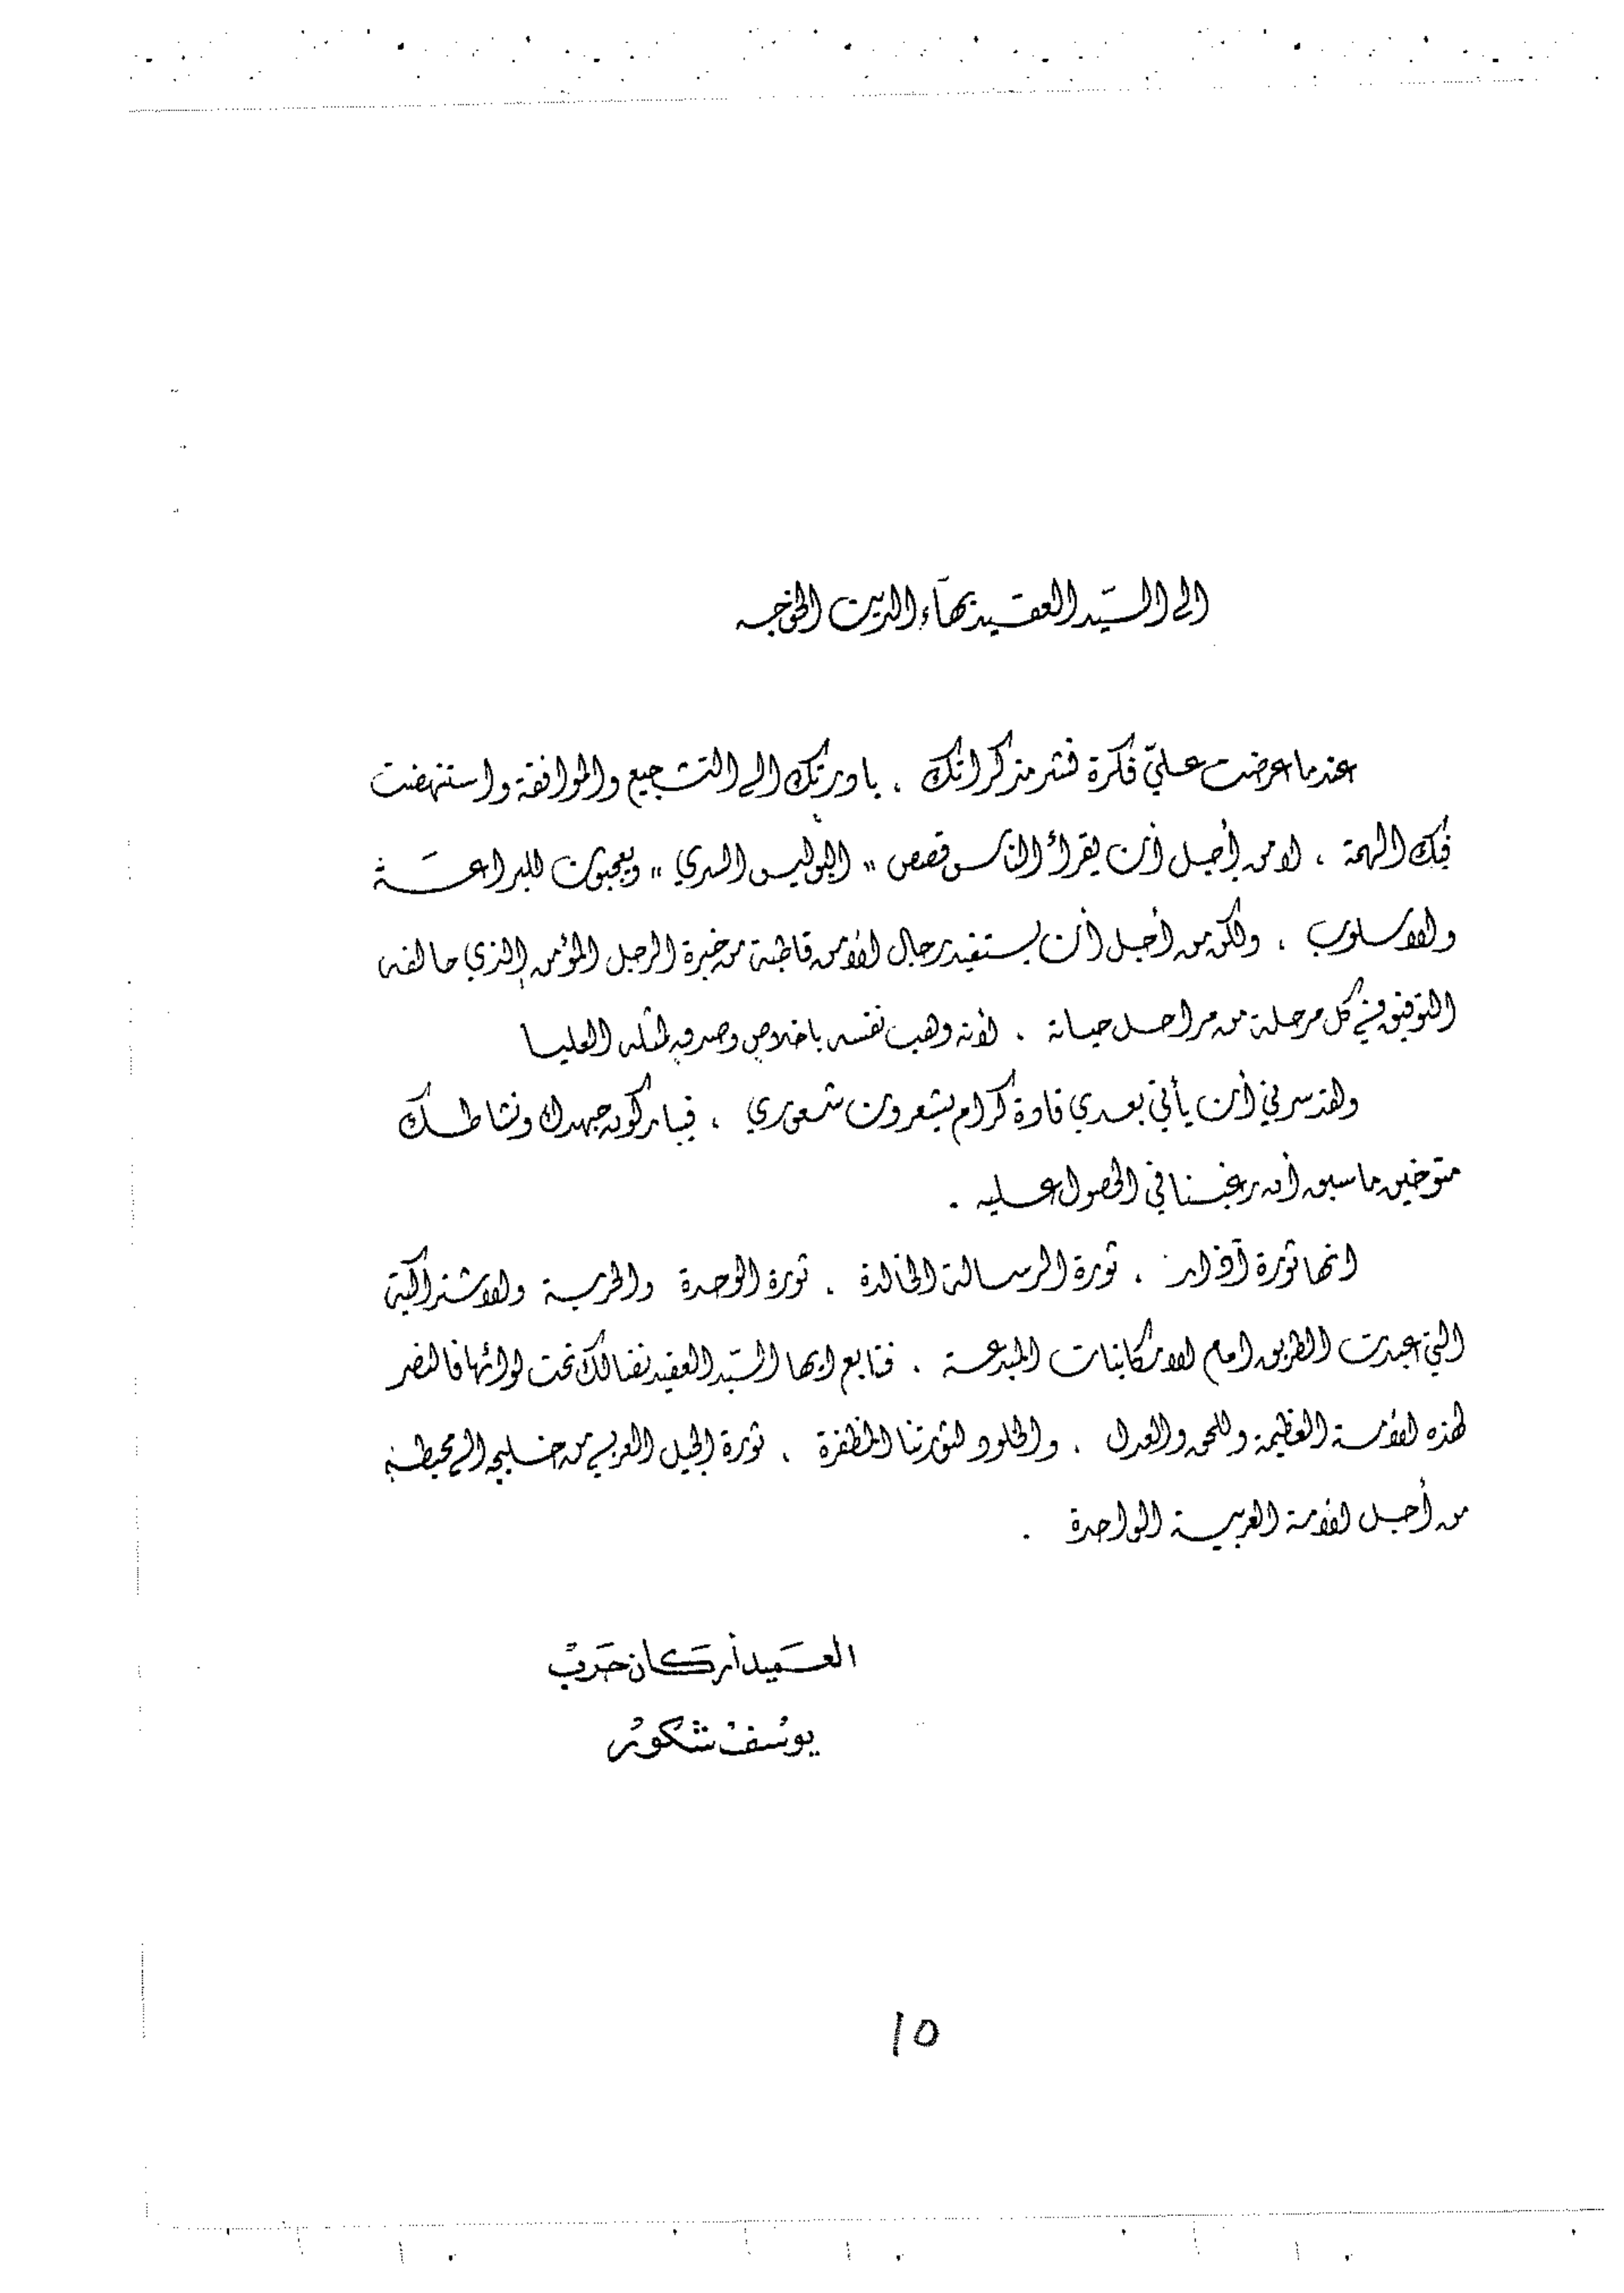 الى السيّد العقيد بهاء الدين الخوجه
عندما عرضت عليّ فكرة نشر مذكراتك ، بادرتك الى التشجيع والموافقة واستنهضت
فيك الهمة ، لا من أجل أن يقرأ الناس قصص « البوليس السري » ويعجبون للبراعة
والأسلوب ، ولكن من أجل أن يستفيد رجال الأمن قاطبة من خبرة الرجل المؤمن الذي حالفه
التوفيق في كل مرحلة من مراحل حياته ، لأنه وهب نفسه باخلاص وصدق لمثله العليا
ولقد سرني أن يأتي بعدي قادة كرام يشعرون شعوري ، فيباركون جهدك ونشاطك
متوخين ما سبق أن رغبنا في الحصول عليه .
انها ثورة آذار ، ثورة الرسالة الخالدة ، ثورة الوحدة والحرية والاشتراكية
التي عبدت الطريق امام الامكانيات المبدعة ، فتابع ايها السيّد العقيد نضالك تحت لوائها فالنصر
لهذه الأمة العظيمة وللحق والعدل ، والخلود لثورتنا المظفرة ، ثورة الجيل العربي من خليجه الى محيطه
من أجل الأمة العربية الواحدة .
العميد أركان حرب
يوسف شكور
١٥